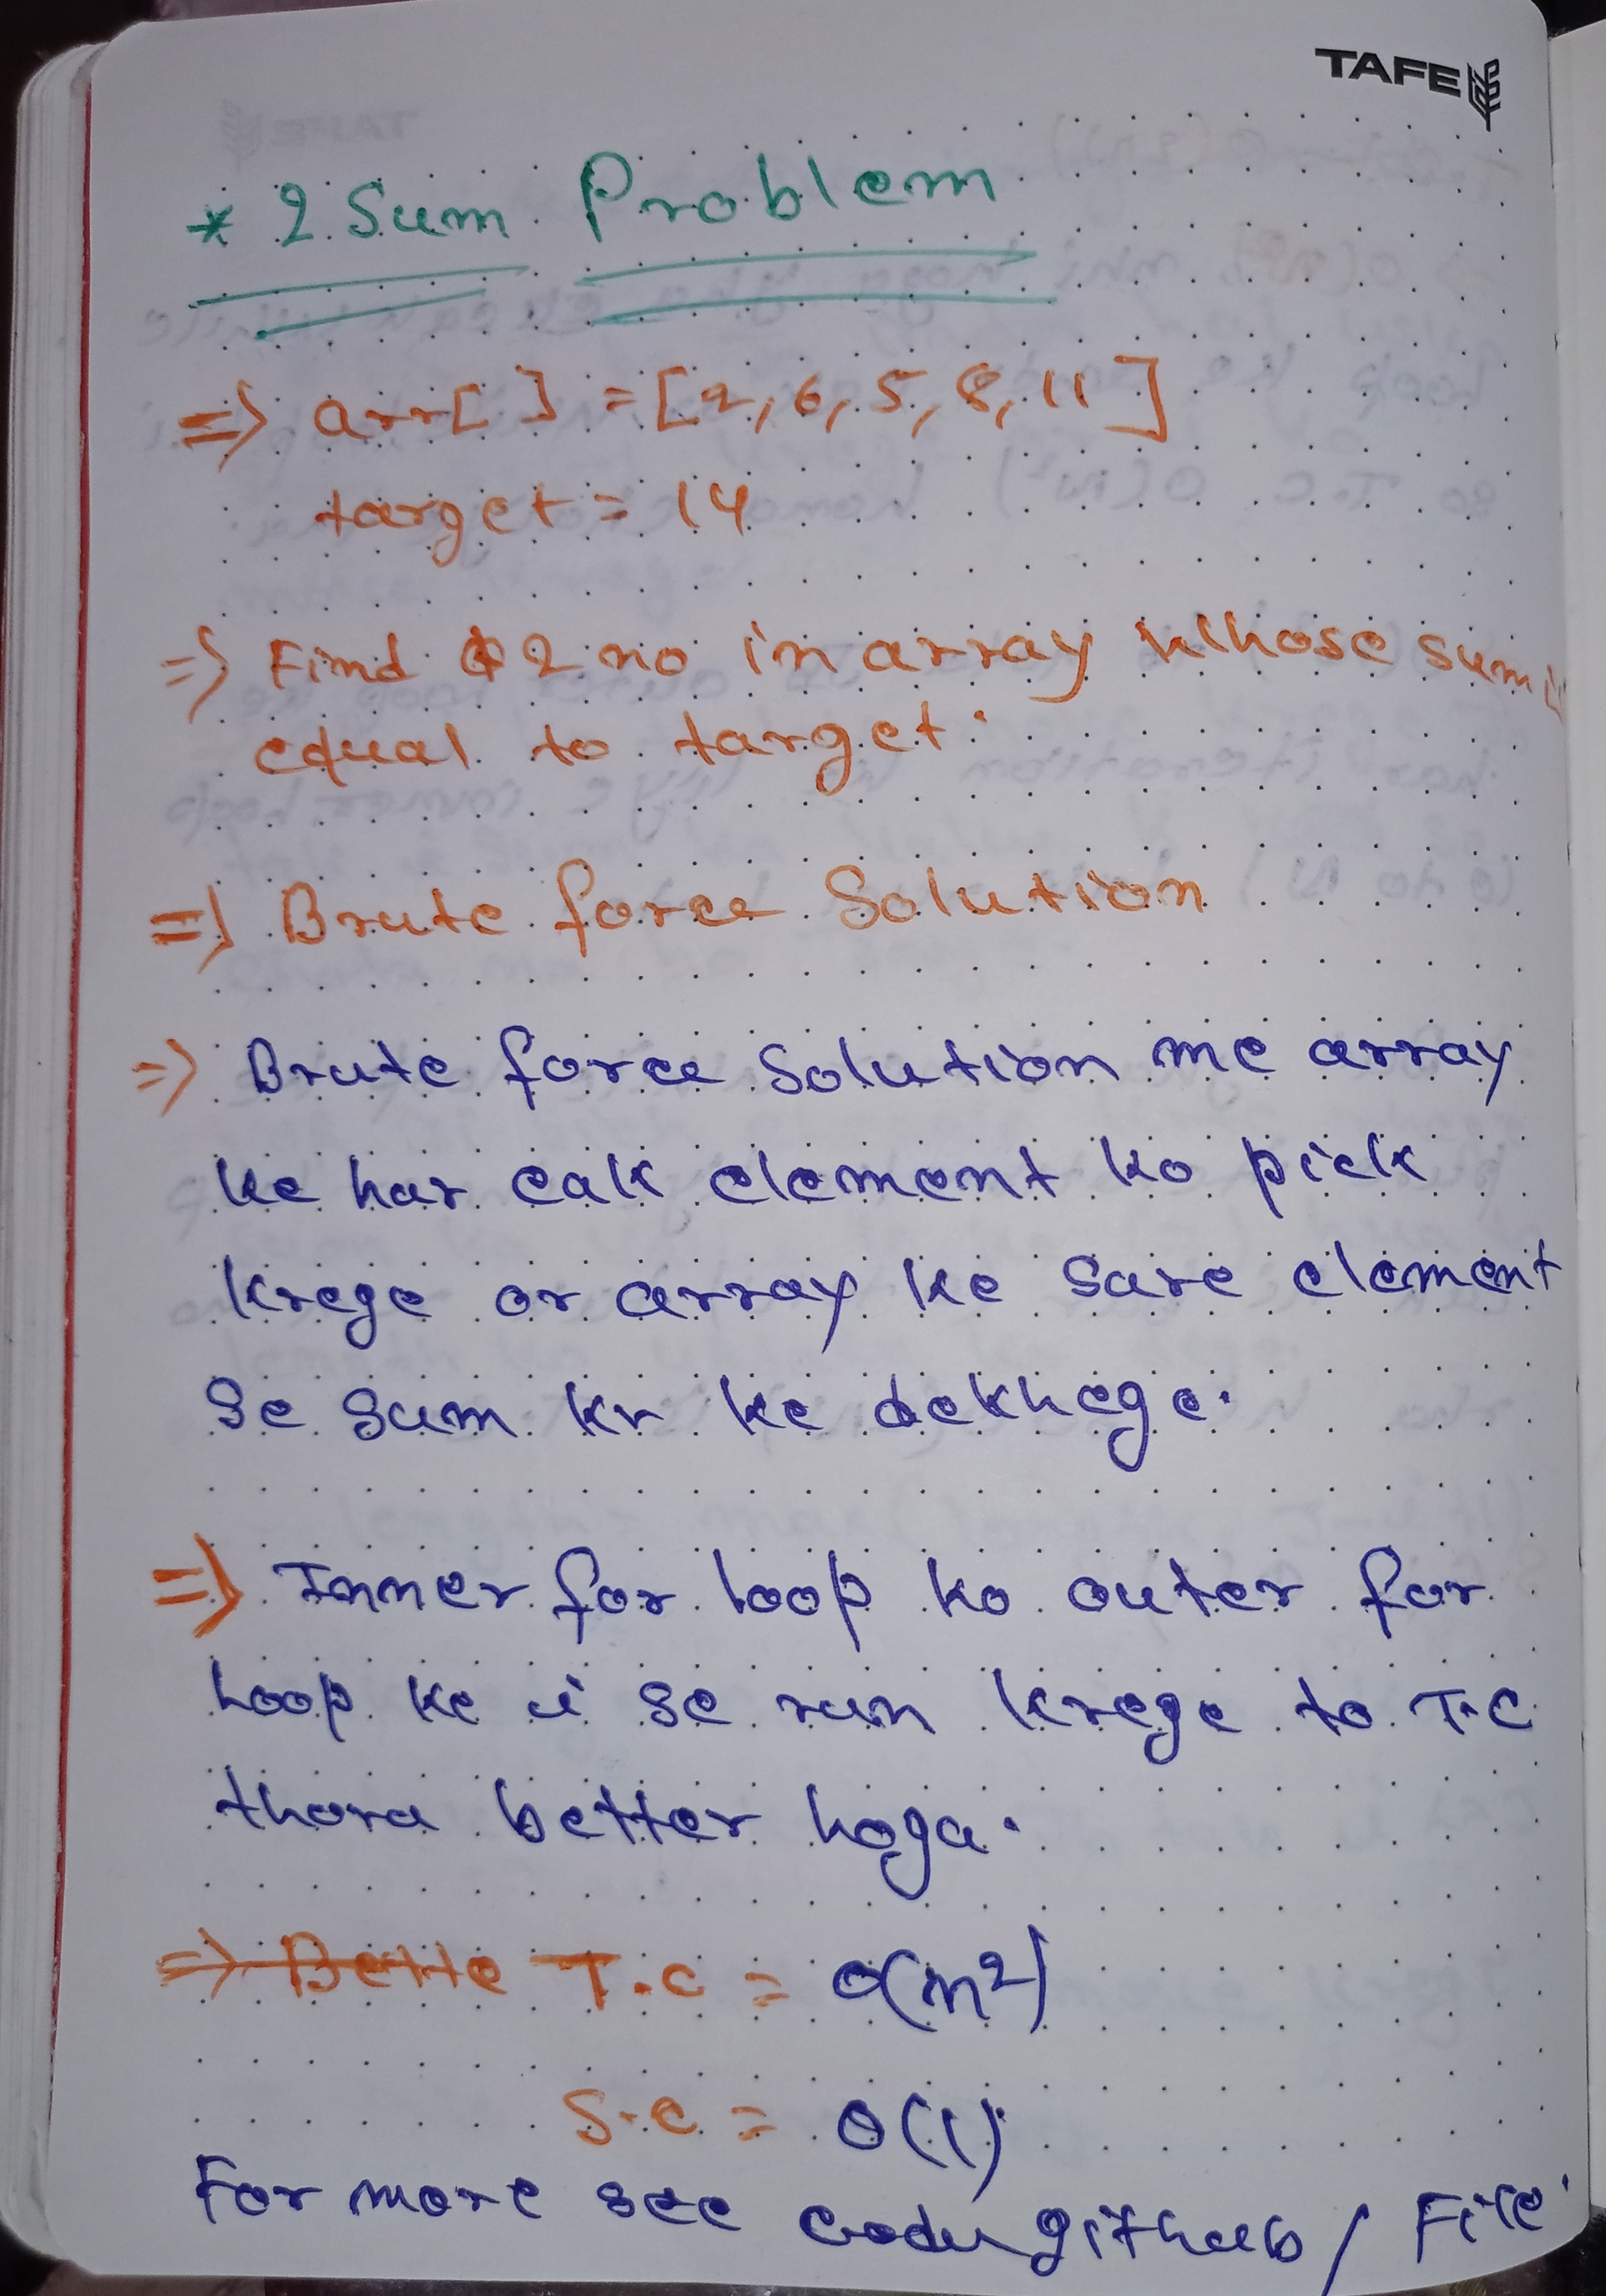 TAFE
* 2 Sum Problem
=> arr[ ] = [2, 6, 5, 8, 11]
target = 14
=> Find 2 no in array whose sum is
equal to target.
=> Brute force Solution
=> Brute force Solution me array
ke har eak element ko pick
krege or array ke sare element
se sum kr ke dekhege.
=> Inner for loop ko outer for
loop ke i se run krege to T.C
thora better hoga.
=> Bette T.C = O(n²)
S.C = O(1)
For more see code github / File